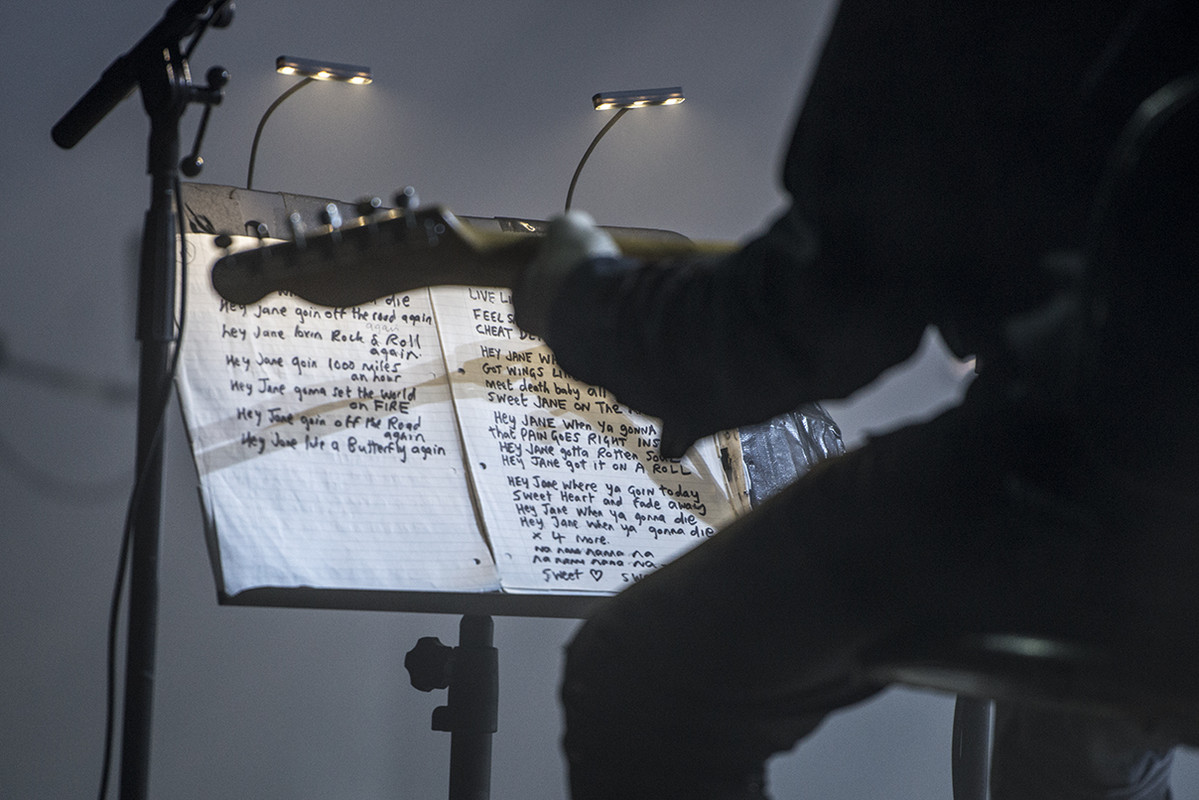 die
Hey Jane goin off the road again
again
hey Jane lovin Rock & Roll
again.
Hey Jane goin 1000 miles
an hour
Hey Jane gonna set the world
on FIRE
Hey Jane goin off the Road
again
Hey Jane live a Butterfly again
LIVE
FEEL
CHEAT
HEY JANE
GOT WINGS
meet death baby all
Sweet JANE on The
Hey JANE when ya gonna
that PAIN GOES RIGHT
HEY JANE gotta Rotten
HEY JANE got it on A ROLL
Hey Jane where ya Goin today
Sweet Heart and fade away
Hey Jane when ya gonna die
Hey Jane when ya gonna die
x 4 more.
na nana nanna na
na nanna nana na
Sweet ♡